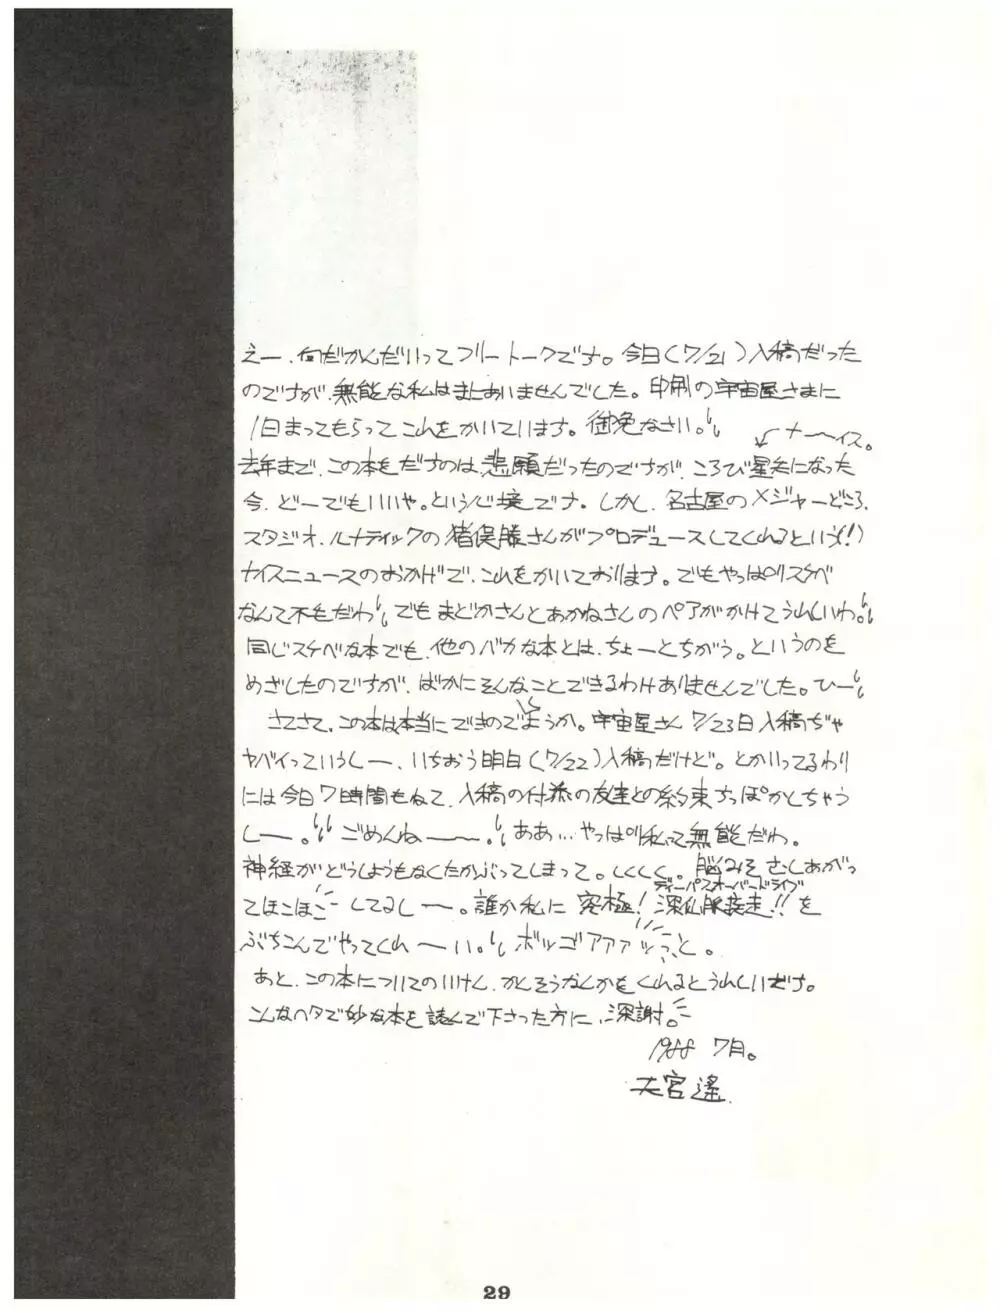 えー、何だかんだいってフリートークです。今日(7/21)入稿だった
のですが、無能な私はまにあいませんでした。印刷の宇宙屋さまに
1日まってもらってこれをかいています。御免なさい。
ナーイス。
去年まで、この本をだすのは、悲願だったのですが、ころび星矢になった
今、どーでもいいや。という心境です。しかし、名古屋のメジャーどころ、
スタジオ・ルナティックの猪俣勝さんがプロデュースしてくれるという(!)
ナイスニュースのおかげで、これをかいております。でもやっぱりスケベ
なんて不毛だわ でもまどかさんとあかねさんのペアがかけてうれしいわ。
同じスケベな本でも、他のバカな本とは、ちょーとちがう。というのを
めざしたのですが、ばかにそんなことできるわけありませんでした。ひー
さてさて、この本は本当にできるのでしょうか。宇宙屋さん 7/23日入稿ぢゃ
ヤバイっていうしー、いちおう明日(7/22)入稿だけど。とかいってるわり
には今日7時間もねて、入稿の付添の友達との約束すっぽかしちゃう
しー。ごめんねー〜。ああ…やっぱり私って無能だわ。
神経がどうしようもなくたかぶってしまって。しくしく。脳みそむしあがっ
てほこほこしてるしー。誰か私に 究極! 深仙脈疾走!!を
ディーパスオーバードライブ
ぶちこんでやってくれーい。ボッゴアアアッっと。
あと、この本についてのいけん、かんそうなんかをくれるとうれしいだす。
こんなヘタで妙な本を読んで下さった方に、深謝。
1988 7月。
大宮遙
29